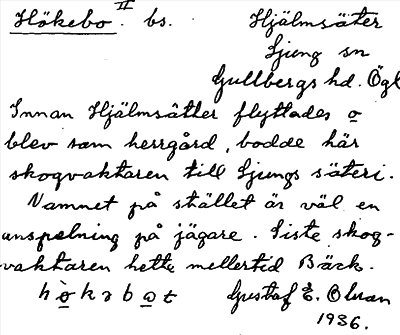 Hökebo II. bs. Hjälmsäter
Ljung sn
Gullbergs hd. Ögl
Innan Hjälmsätter flyttades o
blev som herrgård, bodde här
skogvaktaren till Ljungs säteri.
Namnet på stället är väl en
anspelning på jägare. Siste skog-
vaktaren hette mellertid Bäck.
hò̱kabo̱t Gustaf E. Olsson
1936.